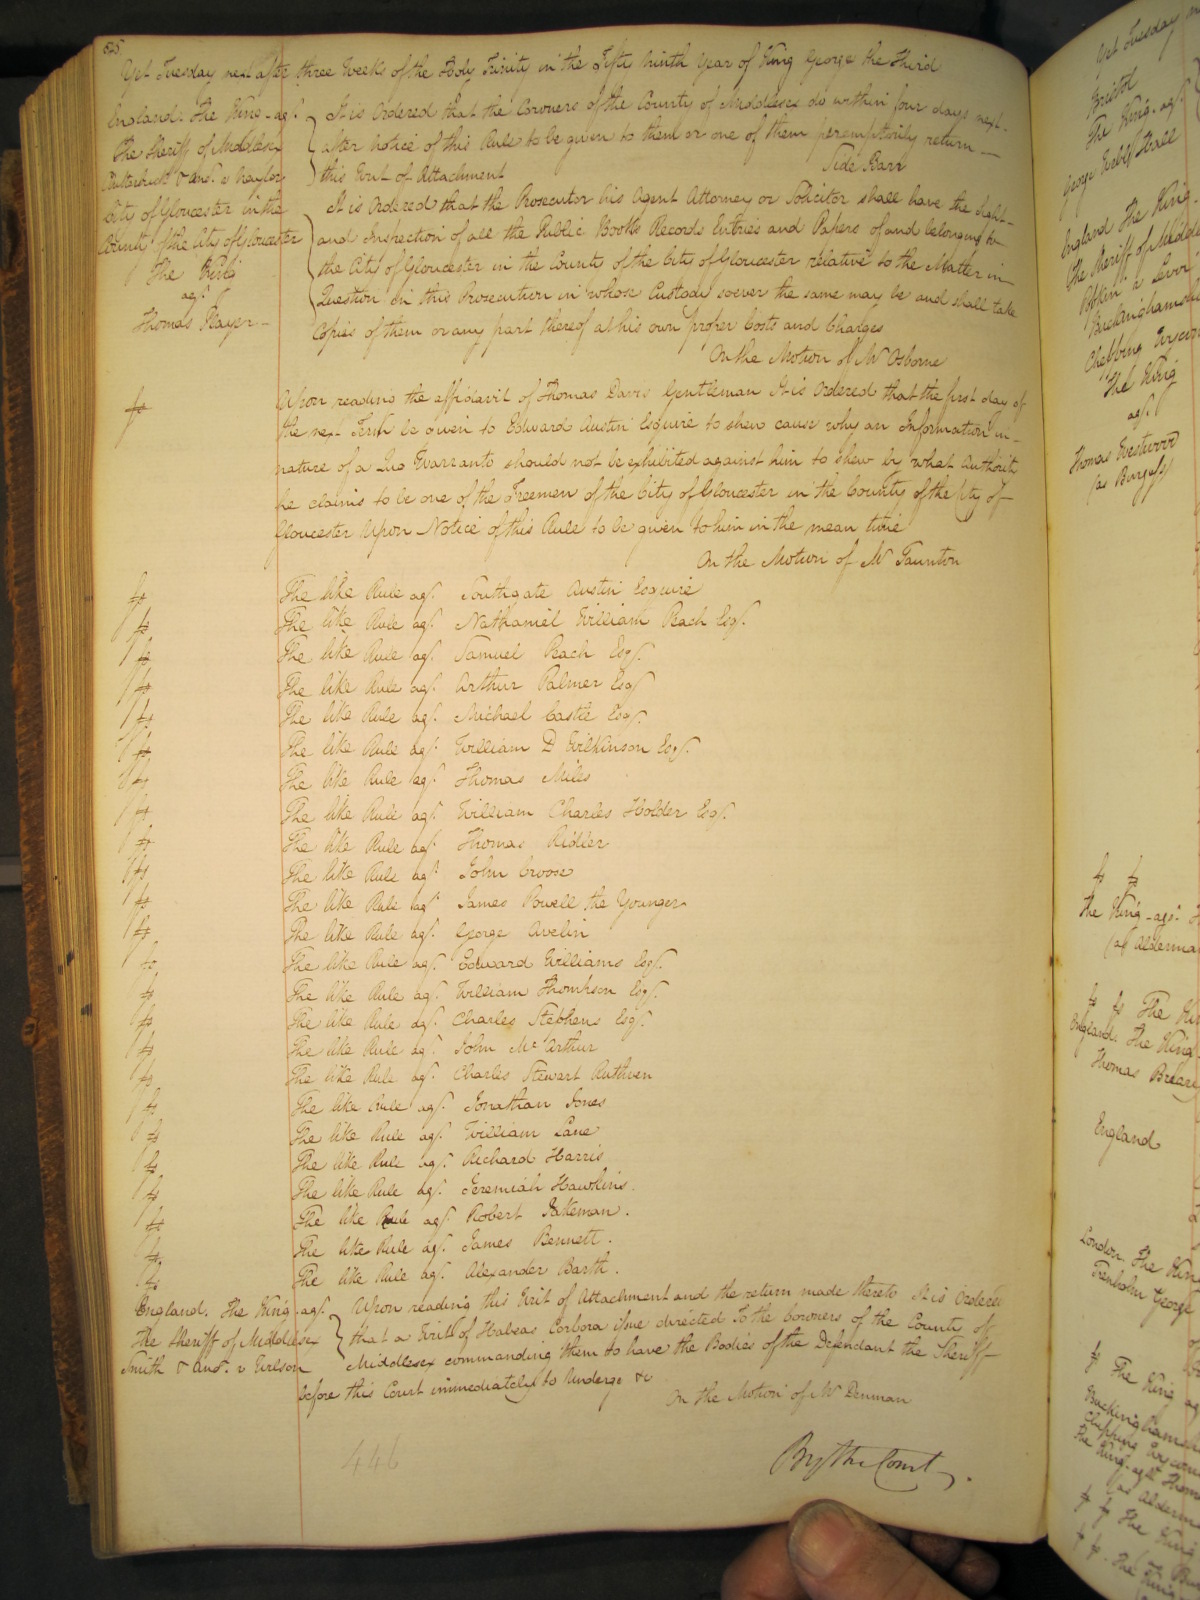 525
Yet Tuesday next after three Weeks of the Holy Trinity in the Fifty ninth Year of King George the Third
England. The King - agst.
The Sheriff of Middlesex
& anr. v Naylor
It is Ordered that the Coroners of the County of Middlesex do within four days next
after Notice of this Rule to be given to them or one of them peremptorily return
this Writ of Attachment
Side Barr
City of Gloucester in the
County of the City of Gloucester
The King
agst.
Thomas Player -
It is Ordered that the Prosecutor his Agent Attorney or Solicitor shall have the Sight
and Inspection of all the Public Books Records Entries and Papers of and belonging to
the City of Gloucester in the County of the City of Gloucester relative to the Matter in
Question in this Prosecution in whose Custody soever the same may be and shall take
Copies of them or any part thereof at his own proper Costs and Charges
On the Motion of Mr Osborne
Upon reading the affidavit of Thomas Davis Gentleman It is Ordered that the first day of
the next Term be given to Edward Austin Esquire to shew cause why an Information in
nature of a Quo Warranto should not be exhibited against him to shew by what Authority
he claims to be one of the Freemen of the City of Gloucester in the County of the City of
Gloucester Upon Notice of this Rule to be given to him in the mean time
On the Motion of Mr Taunton
The like Rule agst. Southgate Austin Esquire
The like Rule agst. Nathaniel William Peach Esqr.
The like Rule agst. Samuel Peach Esqr.
The like Rule agst. Arthur Palmer Esqr
The like Rule agst. Michael Castle Esqr.
The like Rule agst. William D Wilkinson Esqr.
The like Rule agst. Thomas Mills
The like Rule agst. William Charles Holder Esqr.
The like Rule agst. Thomas Ridler
The like Rule agst. John Croose
The like Rule agst. James Powell the Younger
The like Rule agst. George Avelin
The like Rule agst. Edward Williams Esqr.
The like Rule agst. William Thompson Esqr.
The like Rule agst. Charles Stephens Esqr.
The like Rule agst. John Mc Arthur
The like Rule agst. Charles Stewart Ruthven
The like Rule agst. Jonathan Jones
The like Rule agst. William Lane
The like Rule agst. Richard Harris
The like Rule agst. Jeremiah Hawkins.
The like Rule agst. Robert Jakeman.
The like Rule agst. James Bennett.
The like Rule agst. Alexander Barth.
England. The King agst.
The Sheriff of Middlesex
Smith & anr. v Wilson
Upon reading this Writ of Attachment and the return made thereto It is Ordered
that a Writ of Habeas Corpora issue directed to the Coroners of the County of
Middlesex commanding them to have the Bodies of the Defendant the Sheriff
before this Court immediately to Undergo &c
On the Motion of Mr Denman
By the Court.
446
Yet Tuesday
The King - agst
George Webb Hall
England The King -
The Sheriff of
Chepping
The King
agst.
Thomas Westwood
(as Burgess)
The King - agst.
(as Alderma
The
England. The King
Thomas
England
London. The
George
The King
The King - agst Thom
as Alderm
The King
The King